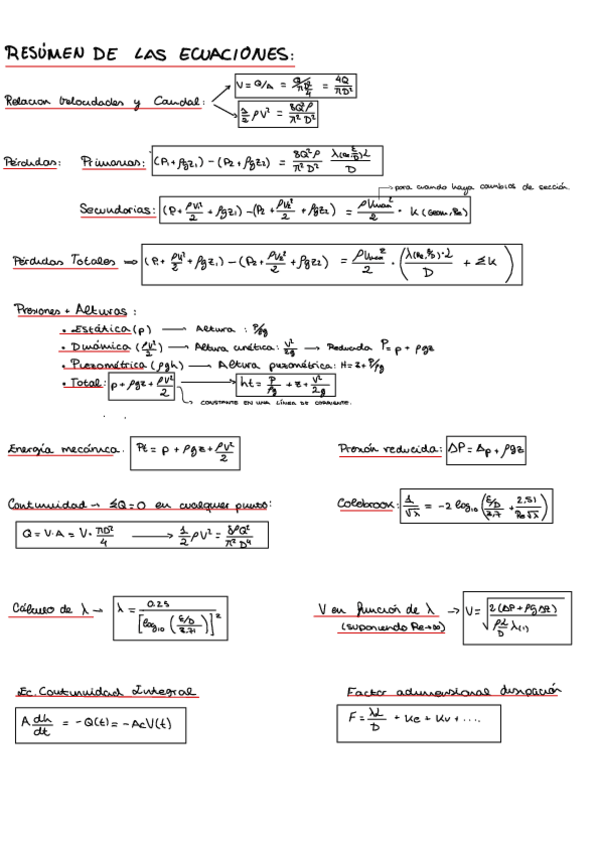 RESÚMEN DE LAS ECUACIONES:
Relacion Velocidades y Caudal: V = Q/A = Q/(πD²/4) = 4Q/πD²
½ ρV² = 8Q²ρ/π²D²
Pérdidas: Primarias: (P₁ + ρgz₁) − (P₂ + ρgz₂) = 8Q²ρ/π²D² · λ(Re, ε/D)·L/D
para cuando haya cambios de sección
Secundarias: (P₁ + ρV₁²/2 + ρgz₁) − (P₂ + ρV₂²/2 + ρgz₂) = ρVmax²/2 · K(Geom, Re)
Pérdidas Totales ⇒ (P₁ + ρV²/2 + ρgz₁) − (P₂ + ρV₂²/2 + ρgz₂) = ρVmax²/2 · (λ(Re, ε/D)·L/D + ΣK)
Presiones + Alturas:
• Estática (p) → Altura : P/ρg
• Dinámica (ρV²/2) → Altura cinética: V²/2g → Reducida P = p + ρgz
• Piezométrica (ρgh) → Altura piezométrica: H = z + P/ρg
• Total: p + ρgz + ρV²/2 → ht = P/ρg + z + V²/2g
CONSTANTE EN UNA LÍNEA DE CORRIENTE.
Energía mecánica. Pt = p + ρgz + ρV²/2
Presión reducida: ΔP = Δp + ρgz
Continuidad → ΣQ = 0 en cualquier punto:
Colebrook: 1/√λ = −2 log₁₀ (ε/D/3.7 + 2.51/Re√λ)
Q = V·A = V·πD²/4 → ½ ρV² = 8ρQ²/π²D⁴
Cálculo de λ → λ = 0.25/[log₁₀ (ε/D/3.71)]²
V en función de λ → V = √(2(ΔP + ρgΔz)/(ρL/D λ(,)))
(suponiendo Re→∞)
Ec. Continuidad Integral
A dh/dt = −Q(t) = −AcV(t)
Factor adimensional disipación
F = λL/D + Ke + Kv + ....